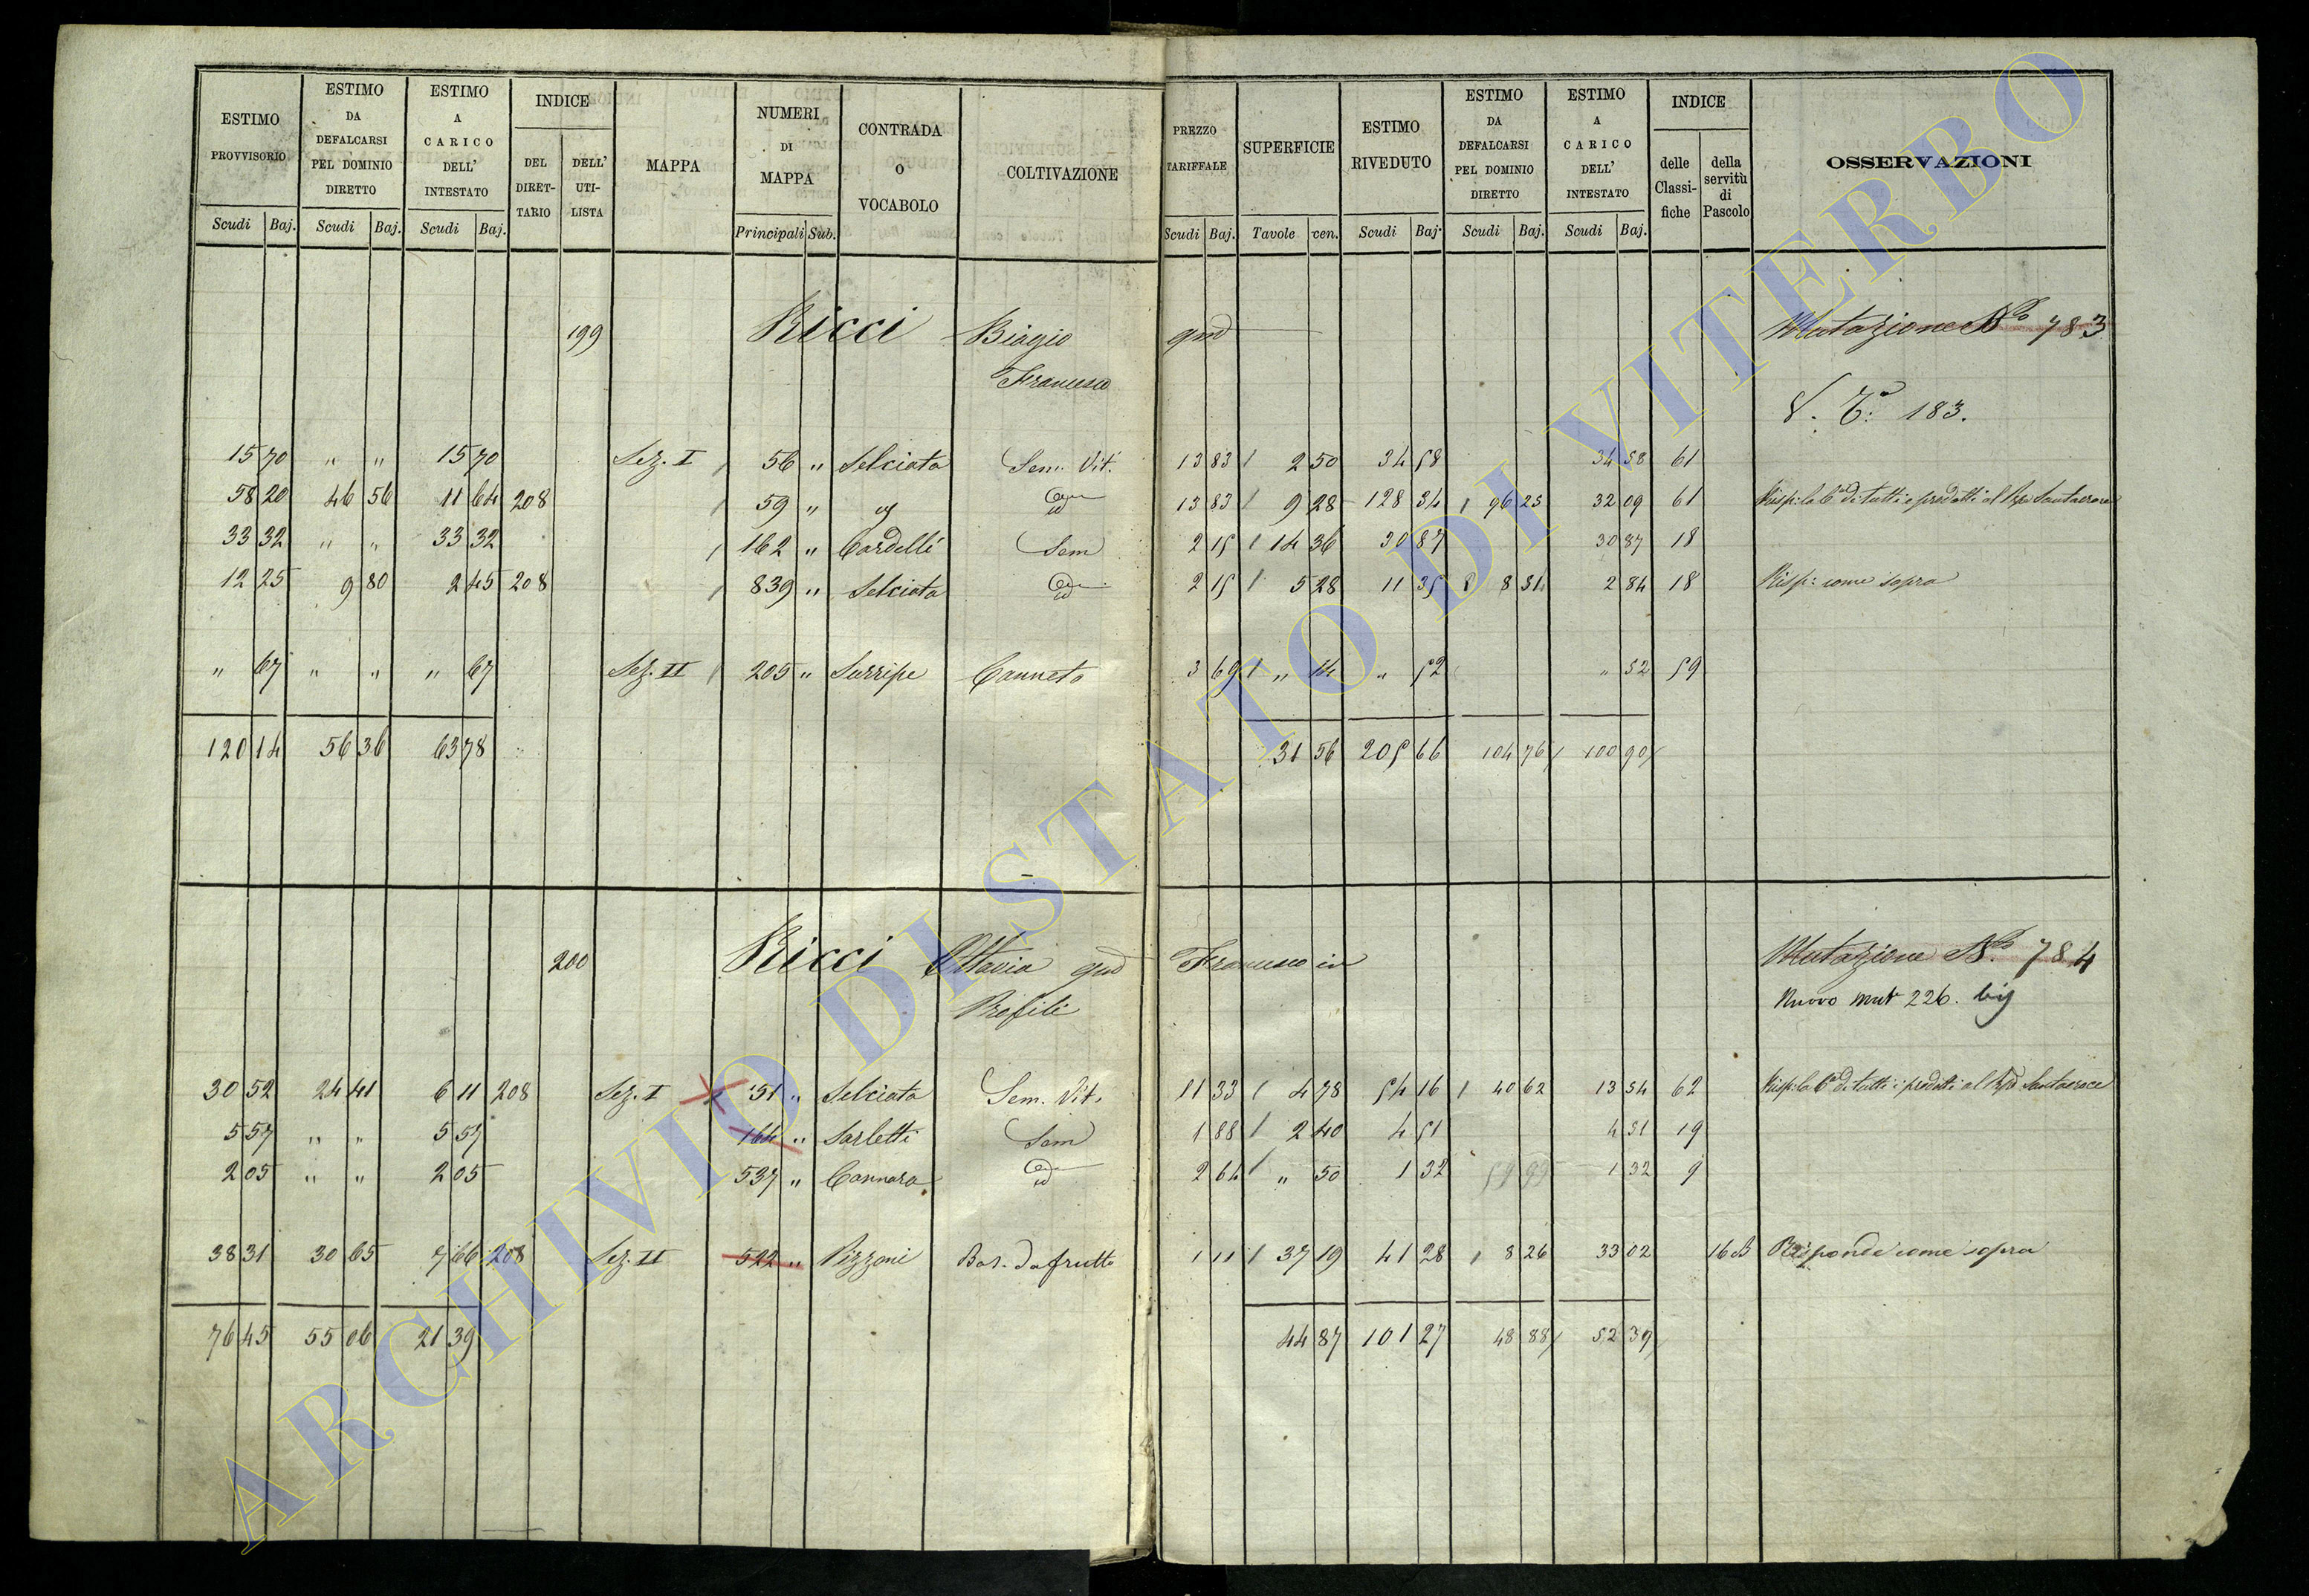 ESTIMO PROVVISORIO Scudi Baj.
ESTIMO DA DEFALCARSI PEL DOMINIO DIRETTO Scudi Baj.
ESTIMO A CARICO DELL' INTESTATO Scudi Baj.
INDICE DEL DIRET-TARIO DELL' UTI-LISTA
MAPPA
NUMERI DI MAPPA Principali Sub.
CONTRADA O VOCABOLO
COLTIVAZIONE
PREZZO TARIFFALE Scudi Baj.
SUPERFICIE Tavole cen.
ESTIMO RIVEDUTO Scudi Baj.
ESTIMO DA DEFALCARSI PEL DOMINIO DIRETTO Scudi Baj.
ESTIMO A CARICO DELL' INTESTATO Scudi Baj.
INDICE delle Classi-fiche della servitù di Pascolo
OSSERVAZIONI
199 Ricci Biagio qm̃ Mutazione No 783
Francesco
183.
15 70 " " 15 70 Sez. I 56 " Selciata Sem. Vit. 13 83 2 50 34 58 34 58 61
58 20 46 56 11 64 208 59 " id 13 83 9 28 128 34 96 25 32 09 61
33 32 " " 33 32 162 " Cardelli Sem 2 15 14 36 30 87 30 87 18
12 25 9 80 2 45 208 839 " Selciata id 2 15 5 28 11 35 8 51 2 84 18 Risp: come sopra
" 67 " " " 67 Sez. II 205 " Surripe Canneto 3 69 " 14 " 52 " 52 59
120 14 56 36 63 78 31 56 205 66 104 76 100 90
200 Ricci Ottavia qm̃ Francesco in Mutazione No. 784
Profili Nuovo mut 226. bis
30 52 24 41 6 11 208 Sez. I 51 " Selciata Sem. Vit. 11 33 4 78 54 16 40 62 13 54 62
5 57 " " 5 57 164 " Sarletti Sem 1 88 2 40 4 51 4 51 19
2 05 " " 2 05 537 " Cannara id 2 64 " 50 1 32 1 32 9
38 31 30 65 7 66 208 Sez. II 522 " Pizzoni Bos. da frutto 1 11 37 19 41 28 8 26 33 02 16 B Risponde come sopra
76 45 55 06 21 39 44 87 101 27 48 88 52 39
ARCHIVIO DI STATO DI VITERBO